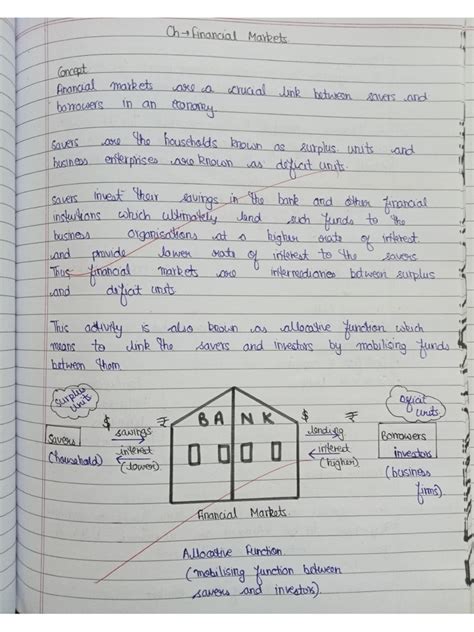 Ch → Financial Markets
Concept
Financial markets are a crucial link between savers and
borrowers in an economy.
Savers are the households known as surplus units and
business enterprises are known as deficit units.
Savers invest their savings in the bank and other financial
institutions which ultimately lend such funds to the
business organisations at a higher rate of interest
and provide lower rate of interest to the savers
Thus financial markets are intermediaries between surplus
and deficit units
This activity is also known as allocative function which
means to link the savers and investors by mobilising funds
between them.
Surplus
units
Deficit
units
$ ₹
BANK
$ ₹
Savers
(household)
savings
interest
(lower)
lending
interest
(higher)
Borrowers
investors
(business
firms).
Financial Markets.
Allocative Function
(mobilising function between
savers and investors).